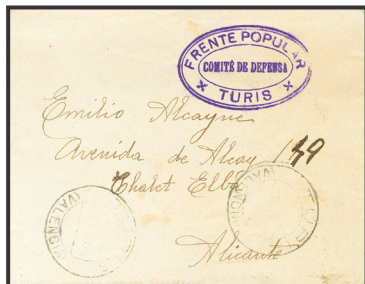 FRENTE POPULAR
COMITÉ DE DEFENSA
TURIS
Emilio Alcayne
Avenida de Alcoy 149
Chalet Elba
Alicante
(VALENCIA)
TURIS
(VALENCIA)